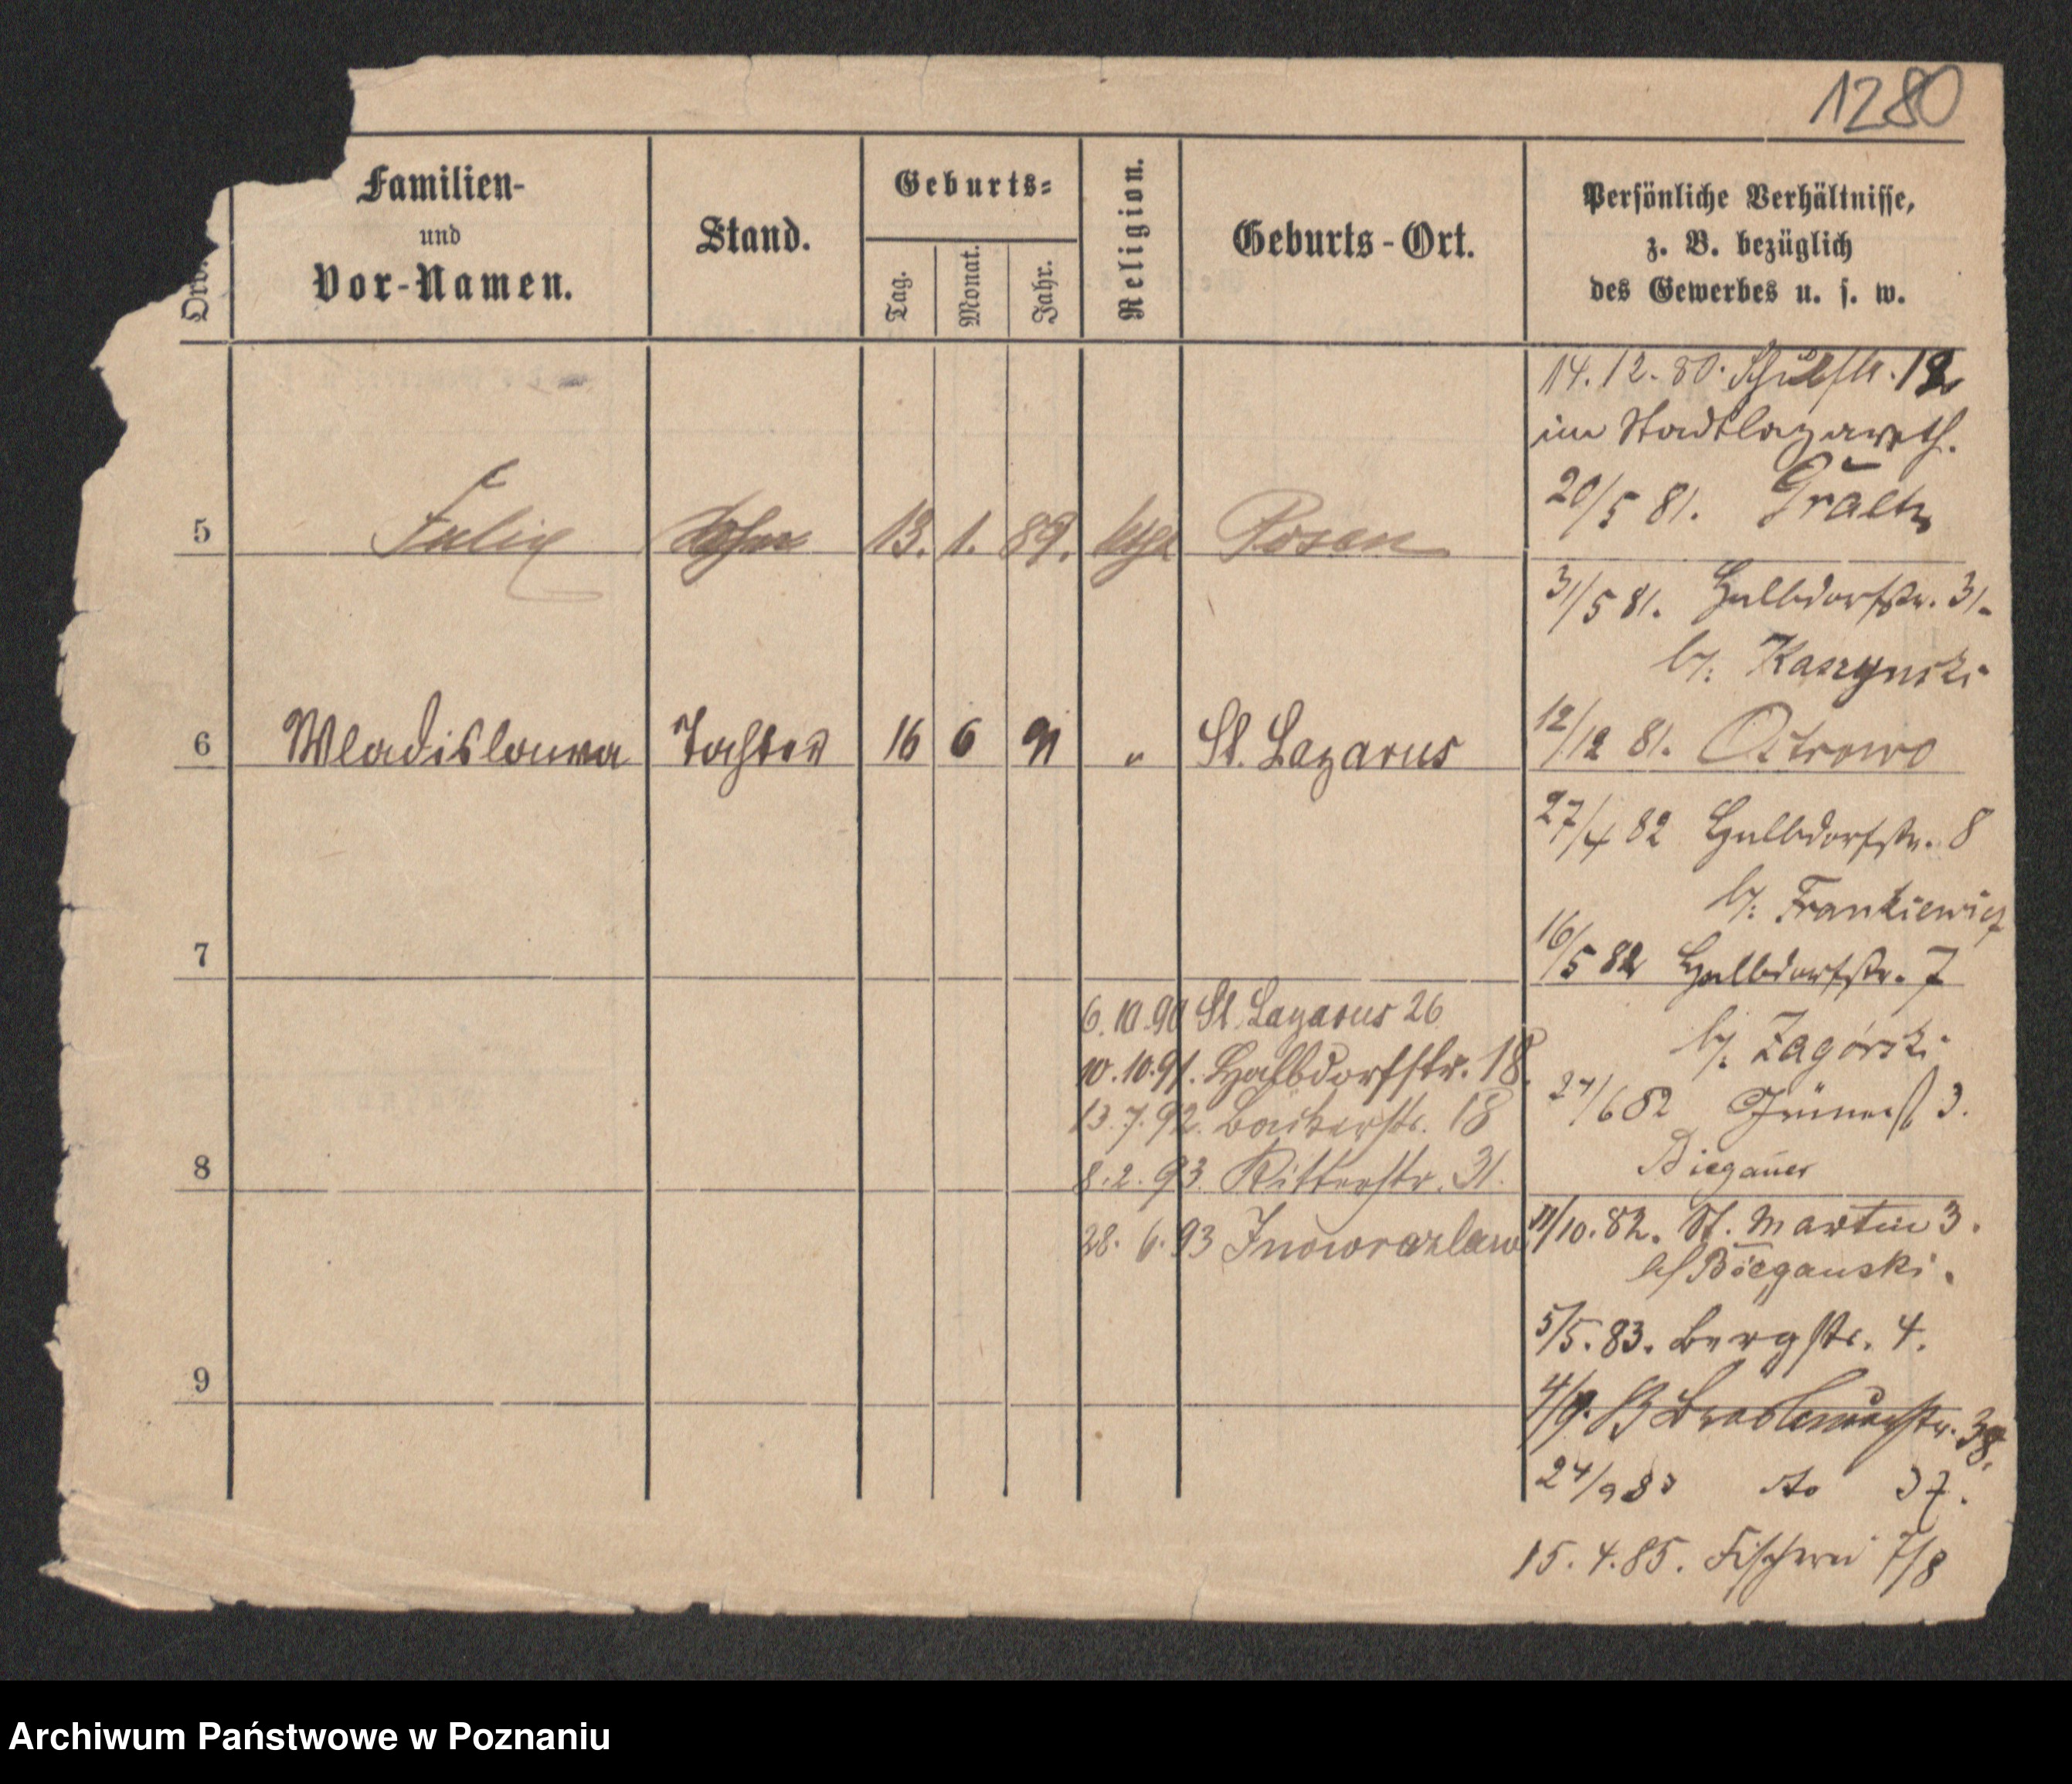 1280
Familien-
und
Vor-Namen.
Stand.
Geburts-
Tag.
Monat.
Jahr.
Religion.
Geburts-Ort.
Persönliche Verhältnisse,
z. B. bezüglich
des Gewerbes u. s. w.
Ord.
14.12.80. 
im Stadtlazareth.
20/5 81. Grätz
5 Felix Sohn 13. 1. 89. ktgl Posen
31/5 81. Halbdorfstr. 31.
b/. Kaszynski
6 Wladislauwa Tochter 16 6 91 " St. Lazarus
12/12 81. Ostrowo
27/4 82 Halbdorfstr. 8
b/. Frankiewicz
7
16/5 82 Halbdorfstr. 7
b/. Zagórski
6.10.90 St. Lazarus 26
10.10.91. Halbdorfstr. 18.
13.7.92. Bäckerstr. 18
8 8.2.93. Ritterstr. 31.
28.6.93 Inowrazlaw
24/6 82 3.
11/10.82. St. Martin 3.
b/ Bieganski.
5/5.83. Bergstr. 4.
9
4/9. 83 38.
24/9 83 do 37.
15.4.85. Fischerei 7/8
Archiwum Państwowe w Poznaniu